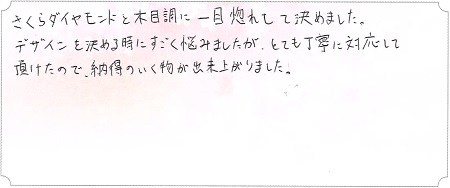 さくらダイヤモンドと木目調に一目惚れして決めました。
デザインを決める時にすごく悩みましたが、とても丁寧に対応して
頂けたので、納得のいく物が出来上がりました。